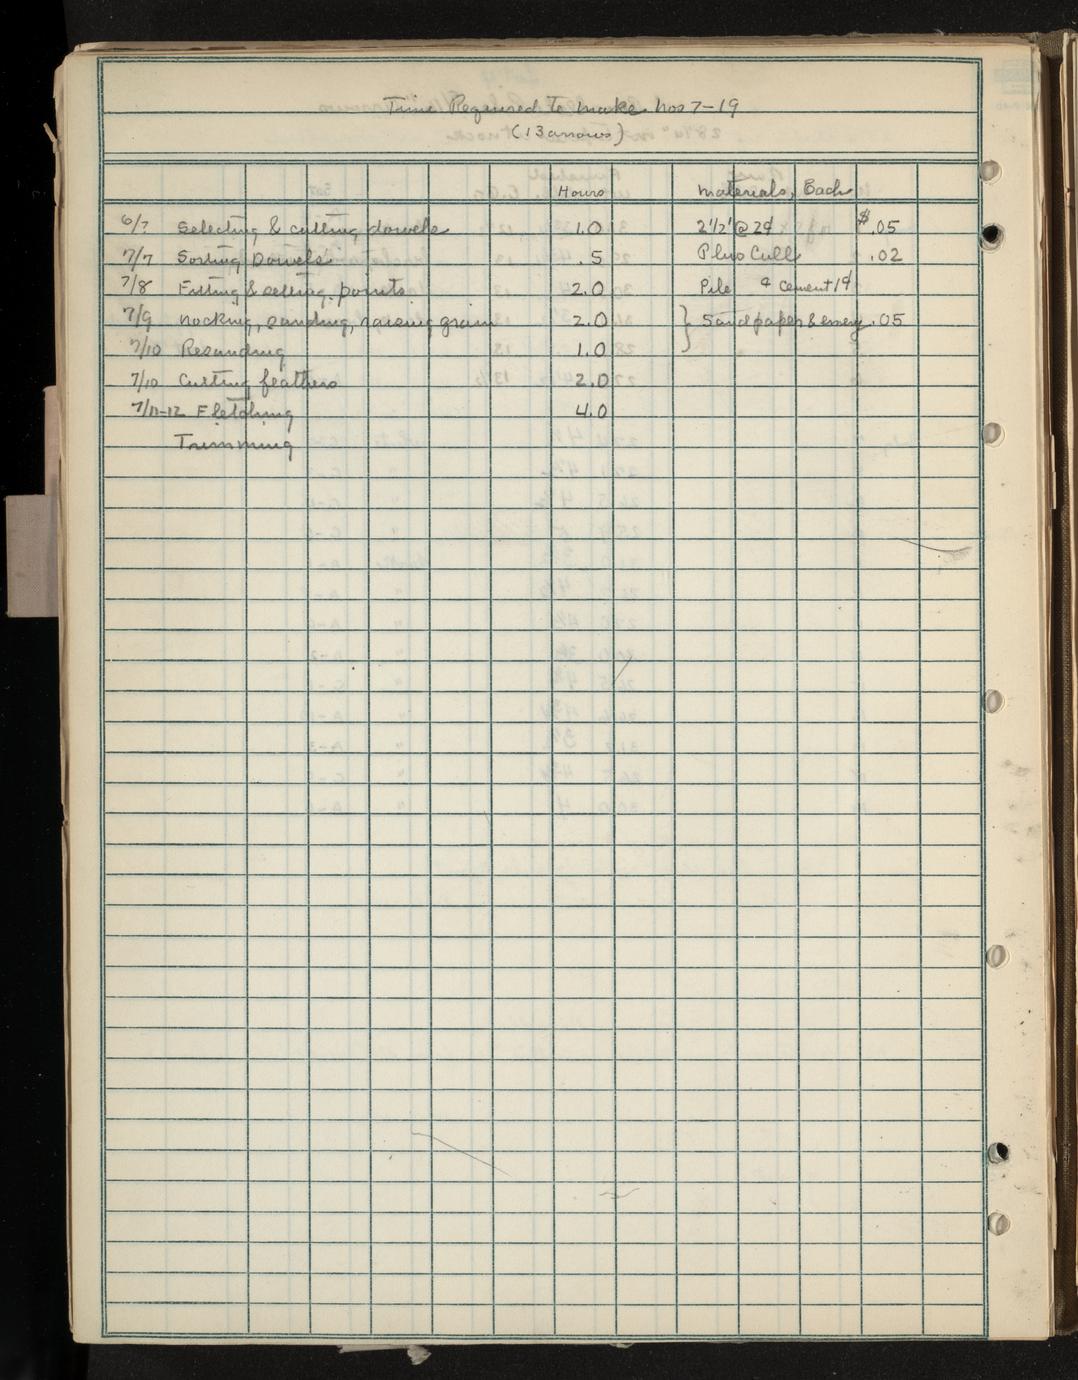 Time Required to make Nos 7-19
(13 arrows)
Hours Materials, Each
6/? Selecting & cutting dowels 1.0 2 1/2' @ 2¢ $.05
7/7 Sorting Dowels .5 Plus Cull .02
7/8 Fitting & setting points 2.0 Pile & Cement 1¢
7/9 Nocking, sanding, raising grain 2.0 } Sandpaper & emery .05
7/10 Resanding 1.0
7/10 Cutting feathers 2.0
7/11-12 Fletching 4.0
Trimming